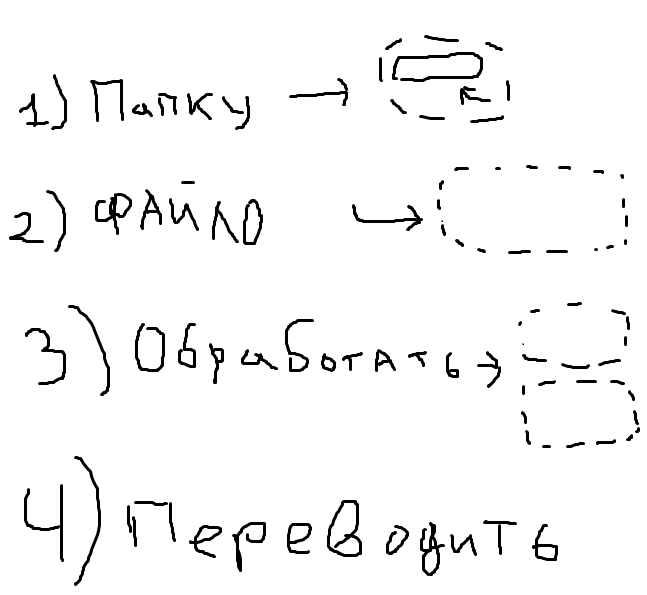 1) Папку →
2) ФАЙЛО →
3) Обработать →
4) Переводить